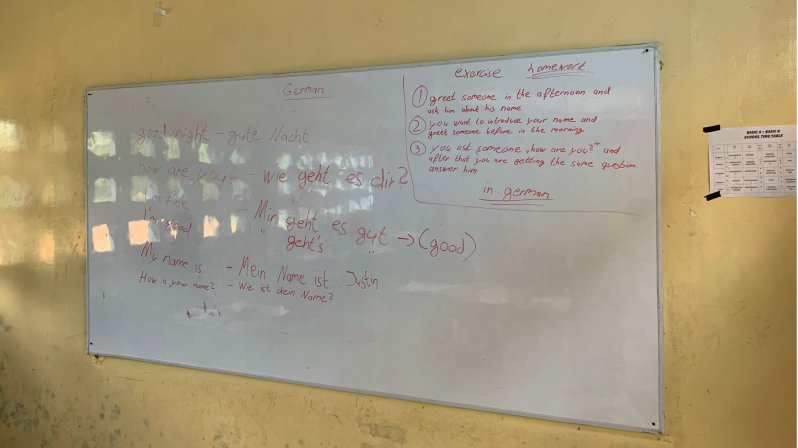 German
good night - gute Nacht
how are you? - Wie geht es dir?
I'm fine
I'm good - Mir geht es gut → (good)
geht's
My name is - Mein Name ist...
How is your name? - Wie ist dein Name?
exercise homework
① greet someone in the afternoon and
ask him about his name
② you want to introduce your name and
greet someone before in the morning
③ you ask someone „how are you?" and
after that you are getting the same question.
answer him
in german
BASIC 4 - BASIC 6
SCHOOL TIME TABLE